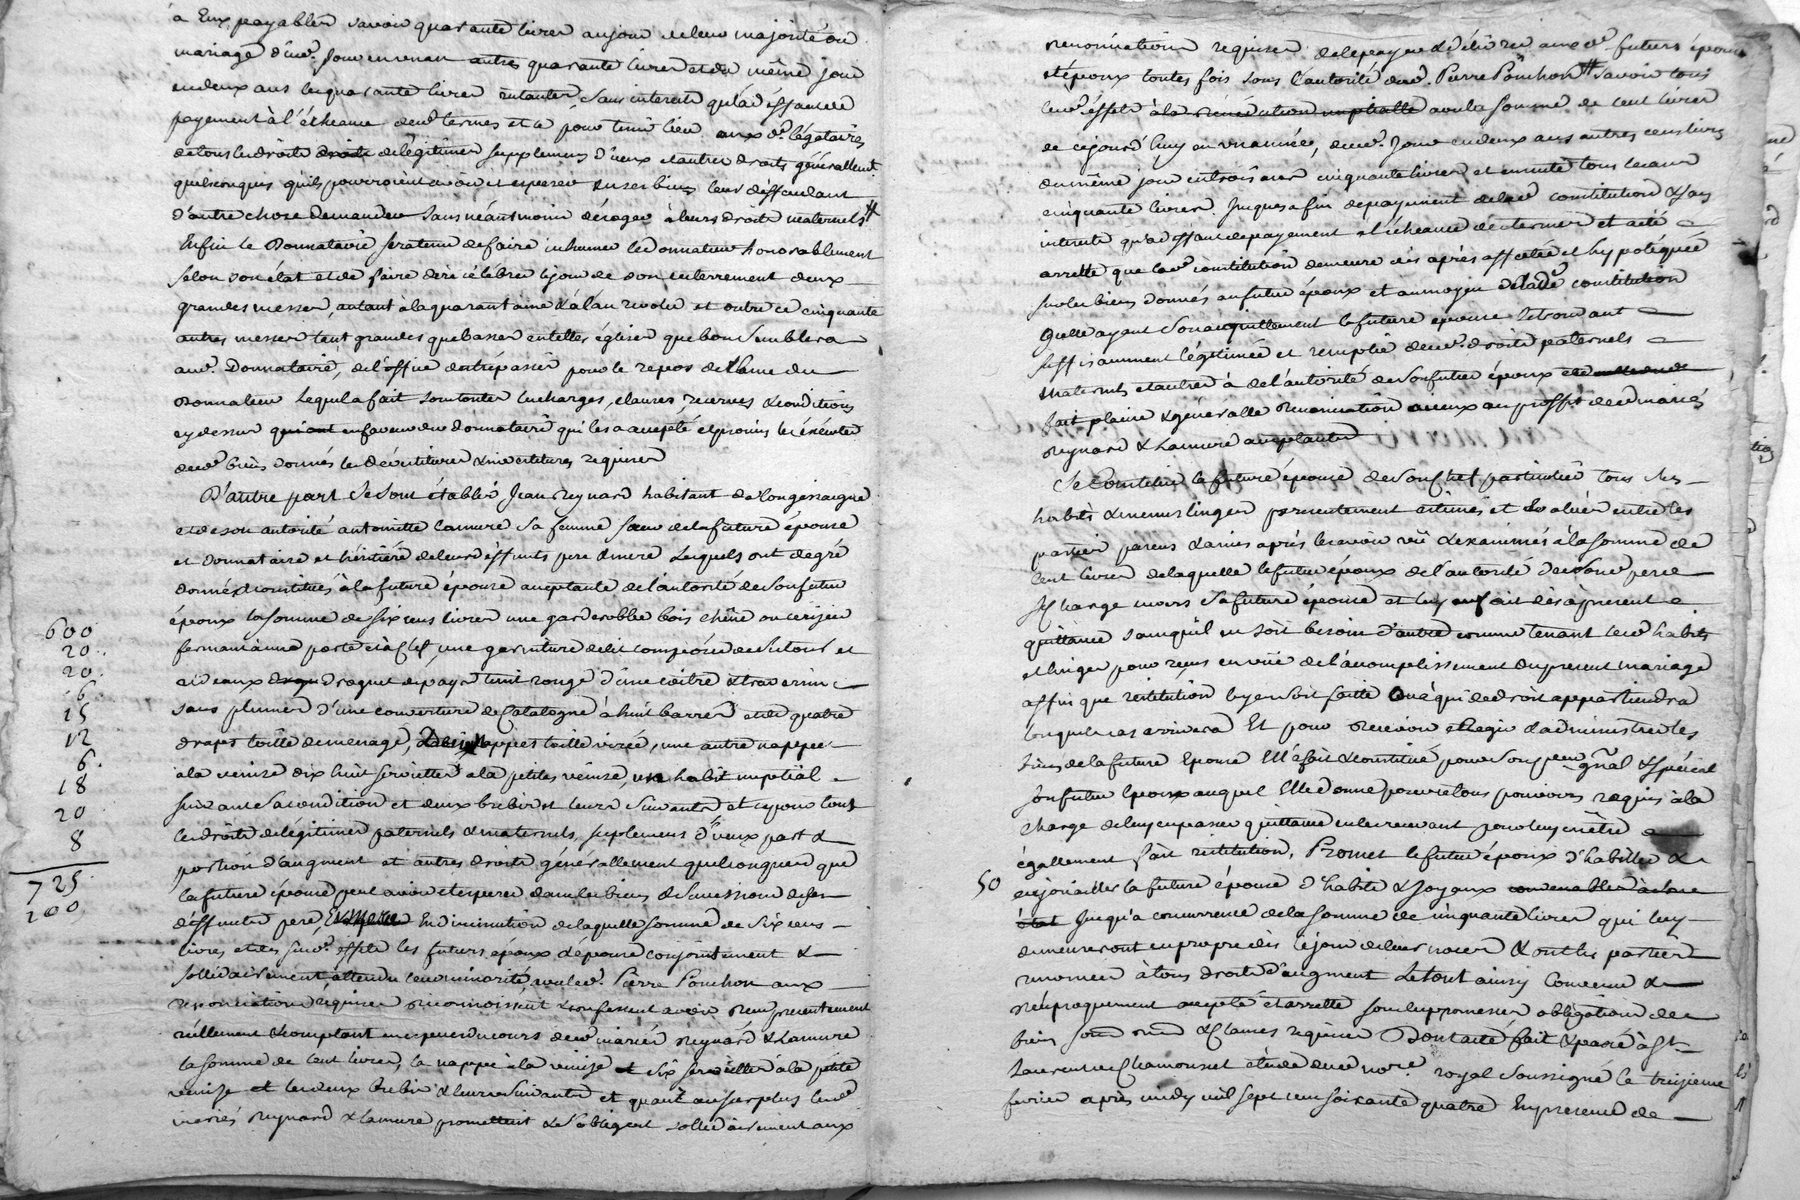 à Eux payables savoir quarante livres au jour de leur majorité ou
mariage d'iceux jour en venant autres quarante livres et du même jour
en deux ans les quarante livres restantes, sans interest qu'à deffaut de
payement à l'écheance desd termes et ce pour tenir lieu auxd legataires
de tous les droits de légitimes supplemens d'iceux et autres droits générallement
quelconques qu'ils pourroient avoir et esperer sur ses biens leur deffendant
d'autre chose demander sans néantmoins déroger à leurs droits maternels #
Enfin le Donnataire sera tenu de faire inhumer le donnateur honorablement
selon son état et de faire dire célébrer le jour de son enterrement deux
grandes messes, autant à la quarantaine & à l'an revolu et outre ce cinquante
autres messes tant grandes que basses en telles églises que bon semblera
aud Donnataire, de l'office de trépassés pour le repos de l'ame du
Donnateur Lequel a fait sous toutes les charges, clauses, reserves & conditions
cy dessus en faveur dud donnataire qui les a accepté et promis les éxécuter
desd biens donnés les dévestitures & investitures requises
D'autre part se sont établis, Jean Reynard habitant de Longessaigne
et de son autorité antoinette Lamure sa femme soeur de la future épouse
et donnataire et héritière de leurs deffunts pere & mere Lesquels ont de gré
donné & constitués à la future épouse aceptante de l'autorité de son futur
époux la somme de six cens livres une garderobbe bois chêne ou cerisier
600
fermant à une porte et à clef, une garniture de lit composée de 
20
rideaux droguet de pays teint rouge d'une coitre & traversin
20
sans plumes d'une couverture de Catalogne à huit barres et de quatre
6
15
draps toille de menage, nappes toille, une autre nappe
12
à la venise dix huit serviettes à la petite venise, un habit nuptial
6
18
suivant sa condition et deux brebis et leurs suivants et ce pour tout
20
les droits de légitimes paternels & maternels, suplemens d'iceux part &
8
portion d'augment et autres droits générallement quelconques que
725
la future épouse peut avoir et esperer dans les biens & successions de ses
100
deffunts pere & mere En diminution de laquelle somme de six cens
livres, et des susd effets les futurs époux & épouse conjointement &
sollidairement, attendu leur minorité, vouled Pierre Ponchon aux
renonciations requises reconnoissent & confessent avoir reçu presentement
réellement & comptant en especes du cours desd mariés Reynard & Lamure
la somme de cent livres, la nappe à la venise et six serviettes à la petite
venise et les deux brebis & leurs suivants et quant au surplus lesd
mariés Reynard & Lamure promettent & s'obligent sollidairement aux
renonciations requises de le payer & délivrer auxd futurs épouse
et époux toutes fois sous l'autorité dud Pierre Ponchon # savoir tous
lesd effets à la avec la somme de cent livres
de ce jourd'huy en une année, dud jour en deux ans autres cens livres
du même jour en trois ans cinquante livres et ensuite tous les ans
cinquante livres jusques à fin de payement de lad constitution & sans
interets qu'à deffaut de payement à l'écheance des termes et a été
arretté que lad constitution demeure dès à présent affectée et hypotéquée
sur les biens donnés au futur époux et au moyen de lade constitution
qu'elle ayant son acquittement la future épouse se trouvant
suffisamment légitimée et remplie desd droits paternels
maternels et autres à de l'autorité de son futur époux
fait pleine & généralle renonciation à iceux au proffit desd mariés
Reynard & Lamure aceptants
Se Constitue la future épouse de son chef particulier tous ses
habits & menus linges presentement estimés et évalués entre les
parties parens & amis après les avoir vû & examinés à la somme de
cent livres de laquelle le futur époux de l'autorité de sond pere
se charge envers sa future épouse et luy en fait dès à present
quittance sans qu'il en soit besoin d'autre comme tenant lesd habits
et linges pour reçus en vüe de l'acomplissement du present mariage
affin que restitution luy en soit faitte ou à qui de droit appartiendra
lorsque le cas arrivera Et pour recevoir & regir & administrer les
biens de la future Epouse Elle a fait & constitué pour son procr gñal & spécial
son futur Epoux auquel Elle donne pour ce tous pouvoirs requis à la
charge de leur en passer quittance en les recevant pour leur en être
égallement fait restitution. Promet le futur époux d'habiller &
50
enjoailler la future épouse d'habits & joyaux
jusqu'a concurrence de la somme de cinquante livres qui luy
demeureront en propre dès le jour de leurs noces & ont les parties
renoncer à tous droits d'augment Le tout ainsy convenu &
reciproquement accepté & arretté sous les promesses obligation de
biens soumd renond & clauses requises Dont acte fait & passé à St
Laurent de Chamousset étude dud nore royal soussigné le troisieme
fevrier après midy mil sept cens soixante quatre En presence de